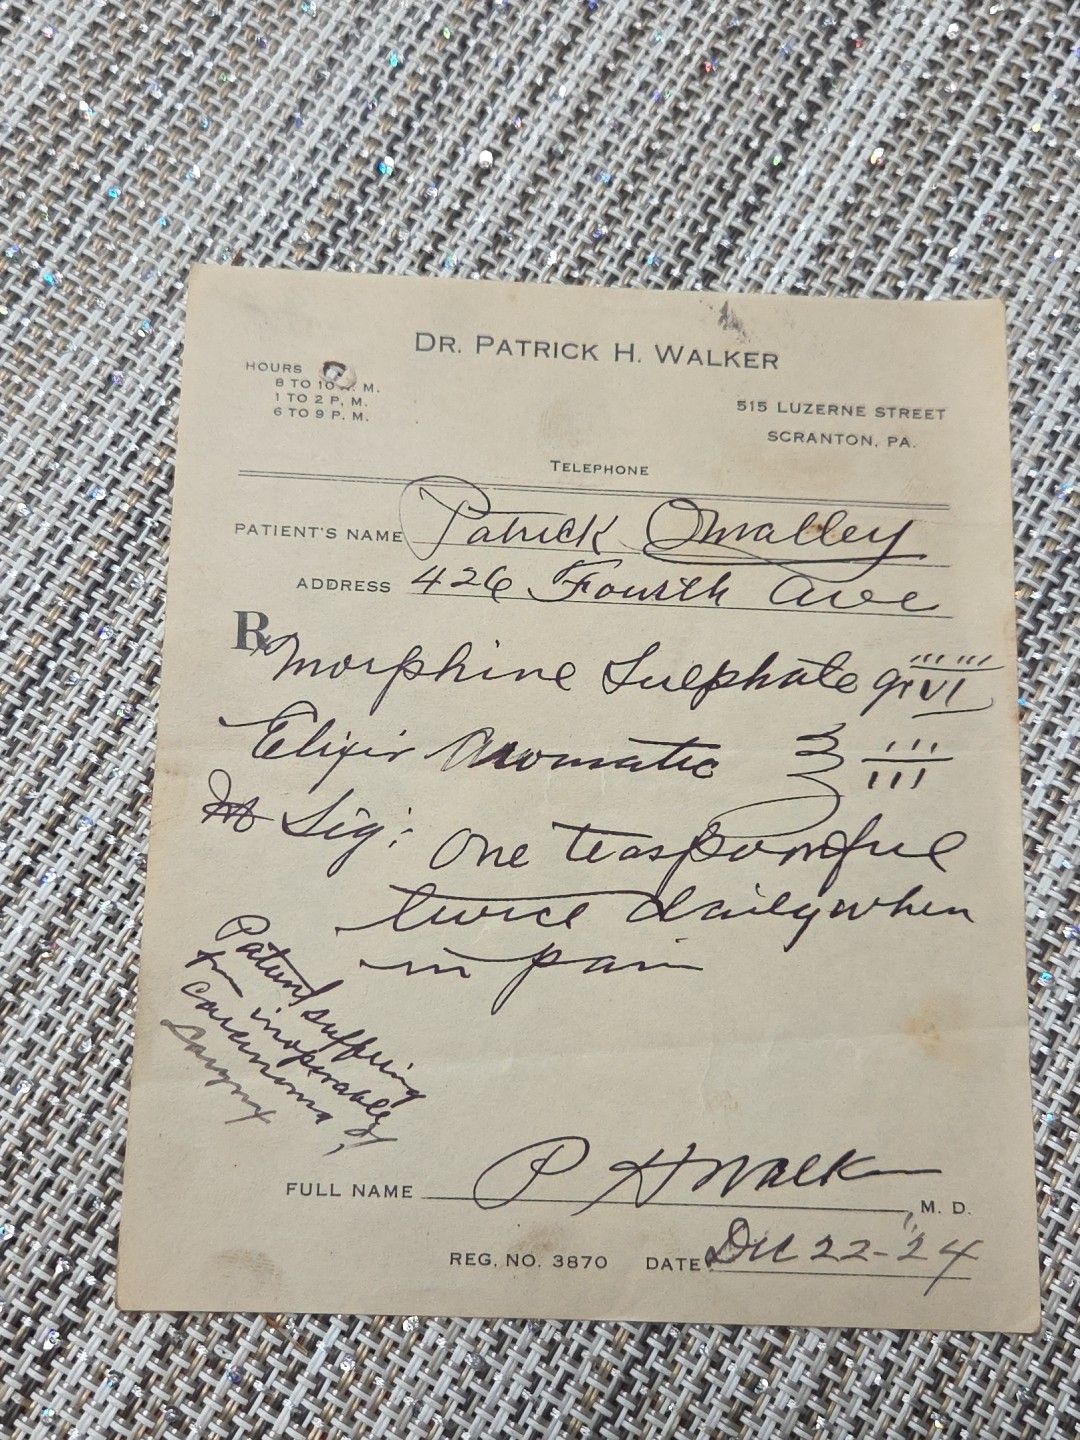 DR. PATRICK H. WALKER
HOURS
8 TO 10 A. M.
1 TO 2 P. M.
6 TO 9 P. M.
515 LUZERNE STREET
SCRANTON, PA.
TELEPHONE
PATIENT'S NAME Patrick Omalley
ADDRESS 426 Fourth Ave
Rx Morphine Sulphate gr VI
Elixir Aromatic ℥ III
M Sig: One teaspoonful
twice daily when
in pain
Patient suffering
from inoperable
carcinoma of
Larynx
FULL NAME P H Walker M. D.
REG. NO. 3870 DATE Dec 22-'24